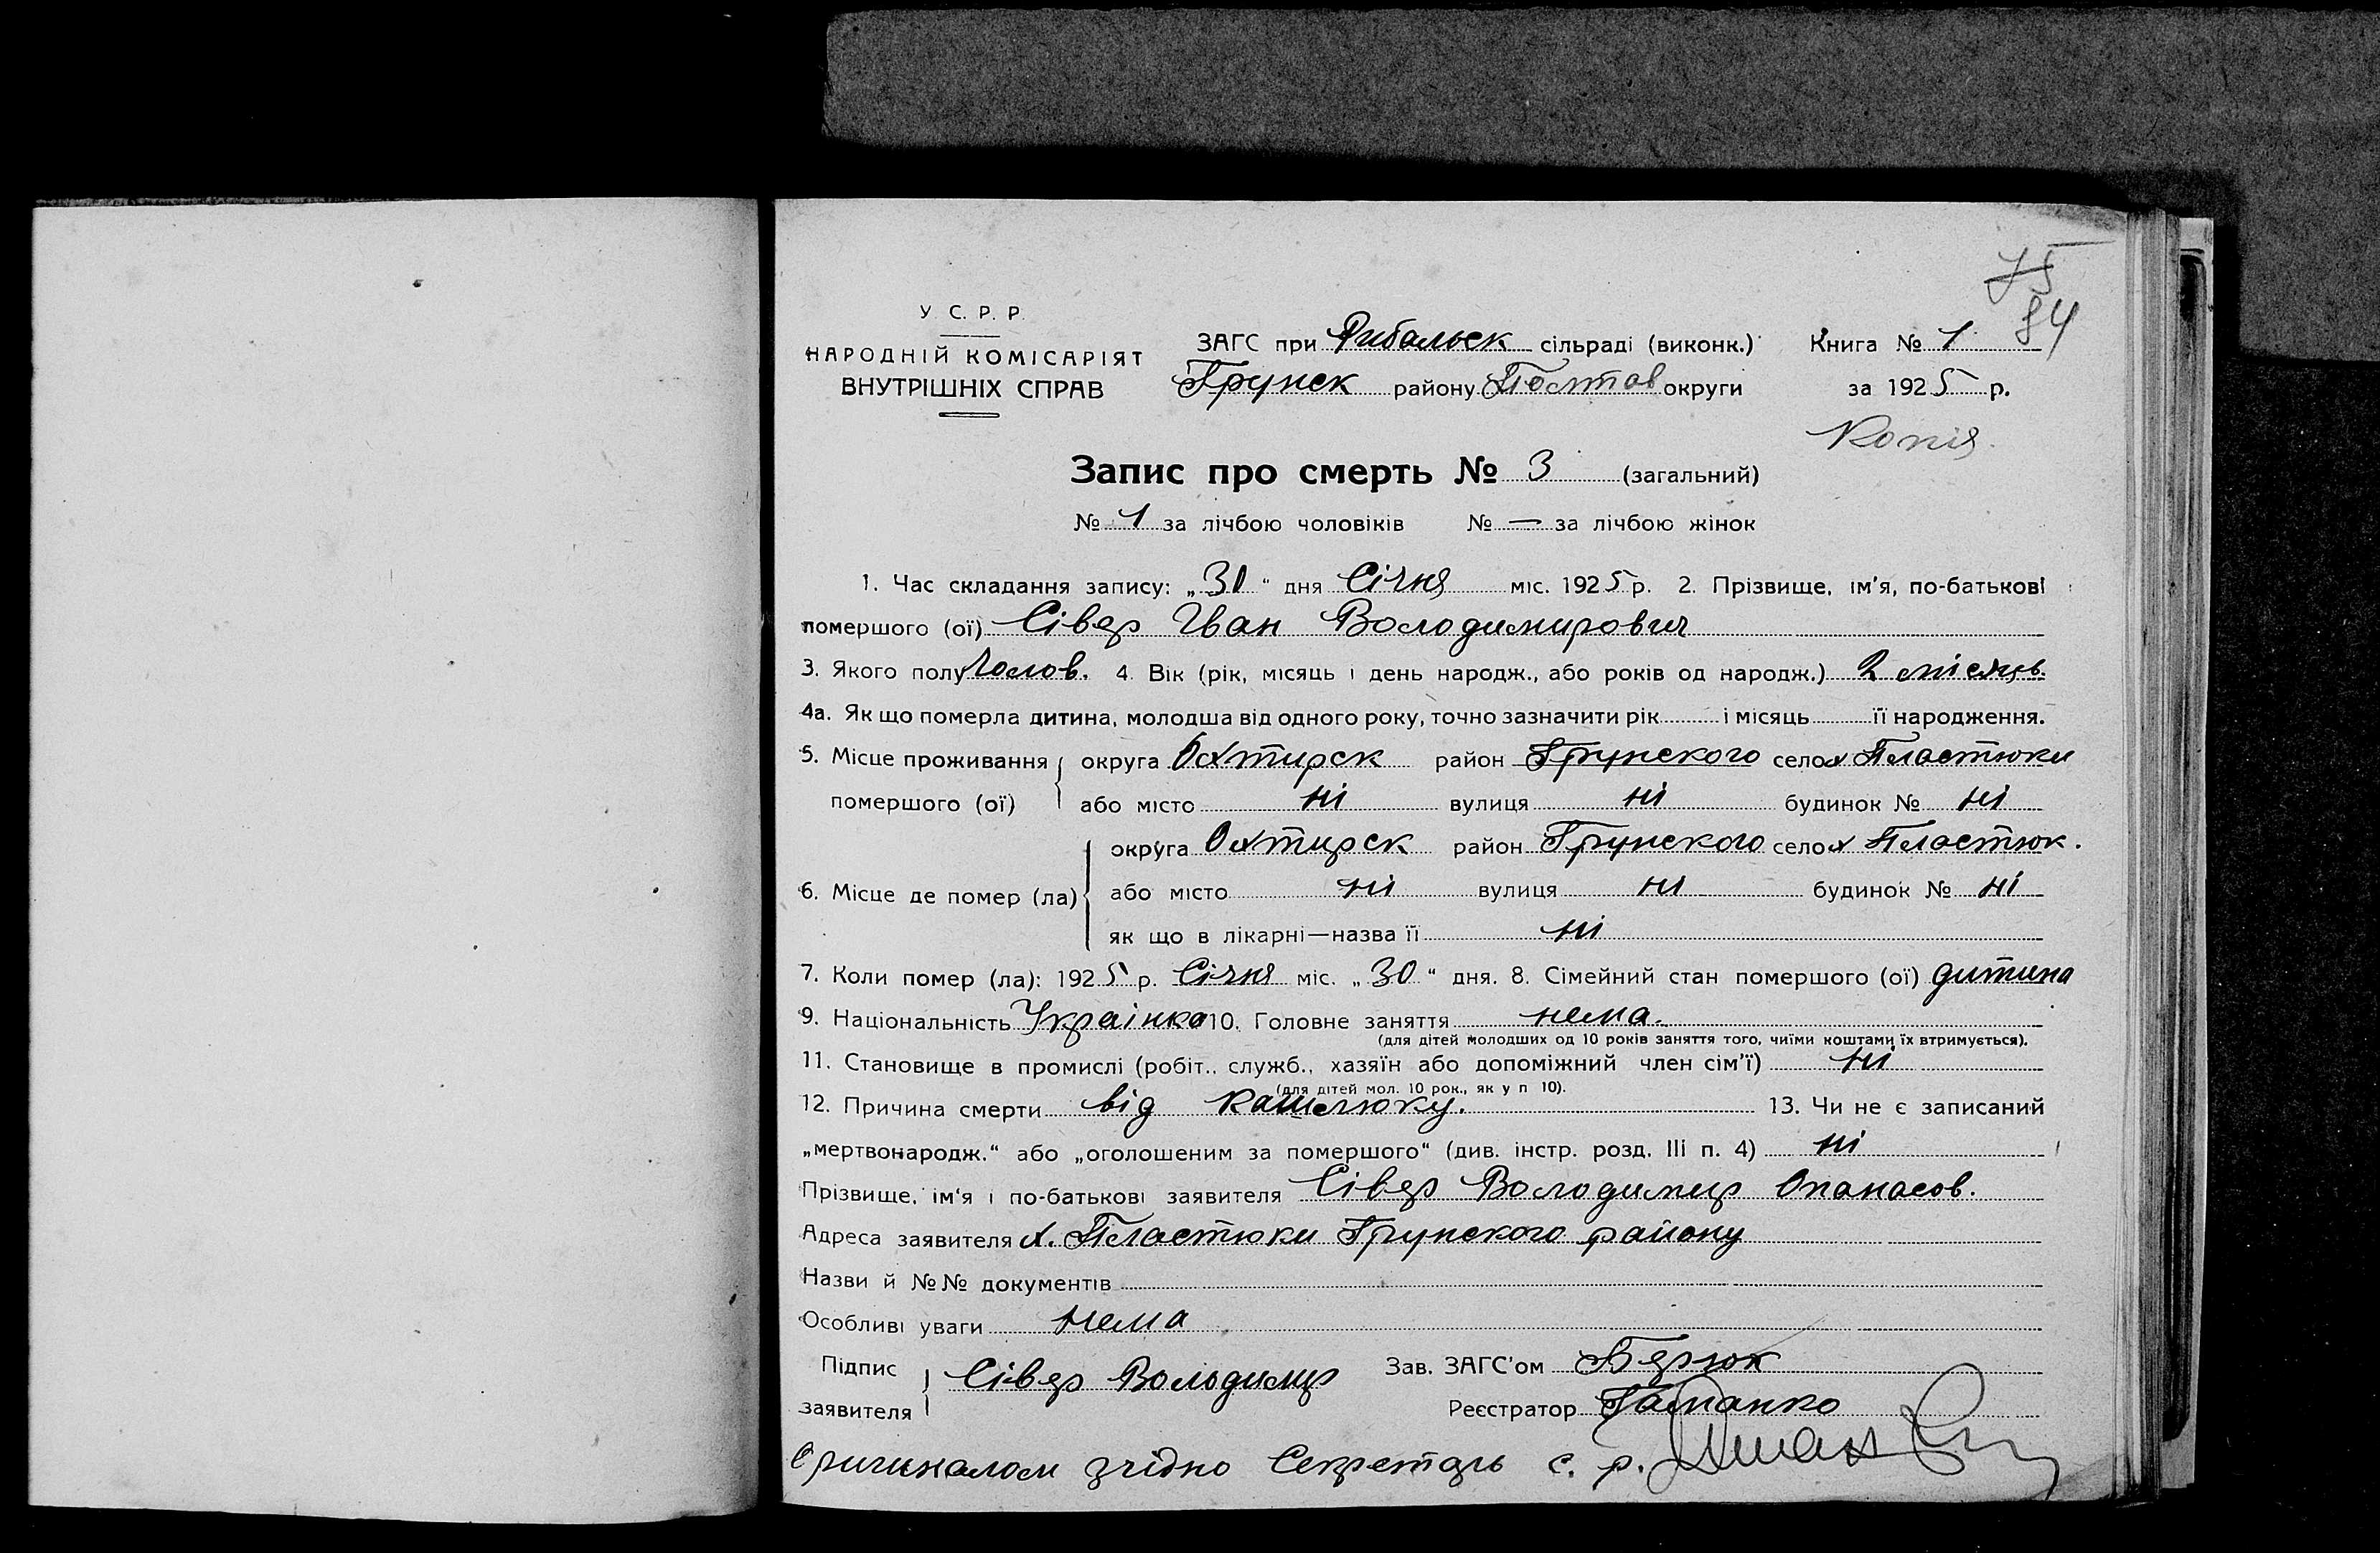 75
84
У С. Р. Р.
НАРОДНІЙ КОМІСАРІЯТ
ВНУТРІШНІХ СПРАВ
ЗАГС при Рибальск сільраді (виконк.)
Грунск району Полтав округи
Книга № 1
за 1925 р.
Копія.
Запис про смерть № 3 (загальний)
№ 1 за лічбою чоловіків № — за лічбою жінок
1. Час складання запису: „30“ дня Січня міс. 1925 р. 2. Прізвище, ім'я, по-батькові
помершого (ої) Сівер Іван Володимирович
3. Якого полу Чолов. 4. Вік (рік, місяць і день народж., або років од народж.) 2 місяць.
4а. Як що померла дитина, молодша від одного року, точно зазначити рік і місяць її народження.
5. Місце проживання помершого (ої) округа Охтирск район Грунского село х Пластюки
або місто ні вулиця ні будинок № ні
6. Місце де помер (ла) округа Охтирск район Грунского село х Пластюк.
або місто ні вулиця ні будинок № ні
як що в лікарні—назва її ні
7. Коли помер (ла): 1925 р. Січня міс. „30“ дня. 8. Сімейний стан помершого (ої) дитина
9. Національність Украінка 10. Головне заняття нема.
(для дітей молодших од 10 років заняття того, чиїми коштами їх втримується).
11. Становище в промислі (робіт., служб., хазяїн або допоміжний член сім'ї) ні
(для дітей мол. 10 рок., як у п 10).
12. Причина смерти від кашлюку. 13. Чи не є записаний
„мертвонародж.“ або „оголошеним за помершого“ (див. інстр. розд. III п. 4) ні
Прізвище, ім'я і по-батькові заявителя Сівер Володимир Опанасов.
Адреса заявителя х. Пластюки Грунского району
Назви й №№ документів
Особливі уваги нема
Підпис заявителя Сівер Вольдимир Зав. ЗАГС'ом
Реєстратор
Оригиналом згідно Секретарь с. р.